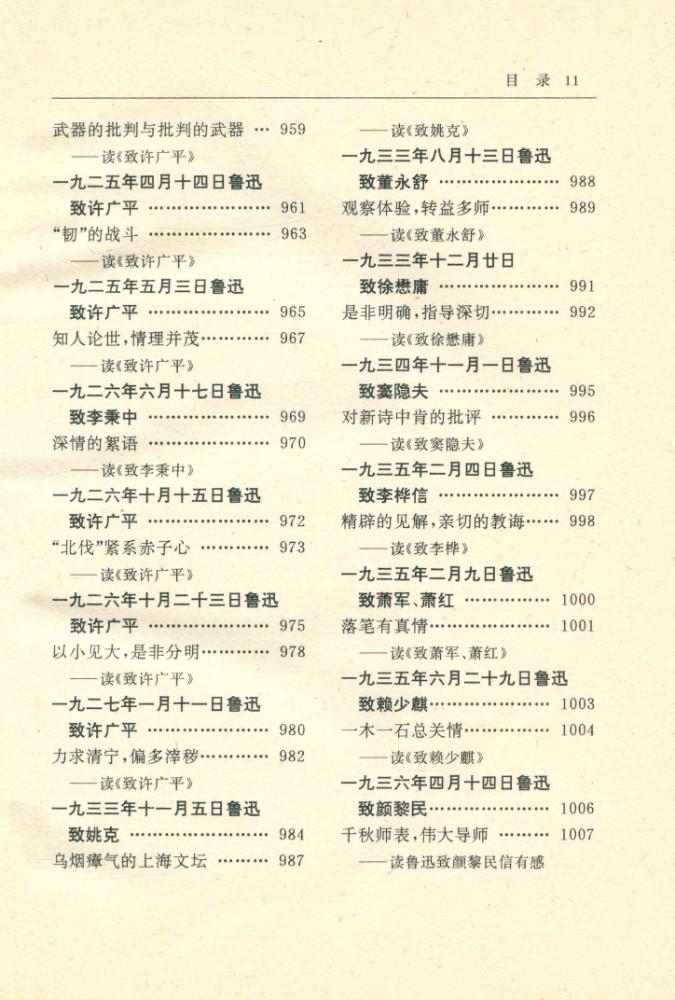 目 录 11
武器的批判与批判的武器 … 959
——读《致许广平》
一九二五年四月十四日鲁迅
致许广平 ………………… 961
“韧”的战斗 ………………… 963
——读《致许广平》
一九二五年五月三日鲁迅
致许广平 ………………… 965
知人论世,情理并茂………… 967
——读《致许广平》
一九二六年六月十七日鲁迅
致李秉中 ………………… 969
深情的絮语 ………………… 970
——读《致李秉中》
一九二六年十月十五日鲁迅
致许广平 ………………… 972
“北伐”紧系赤子心 ………… 973
——读《致许广平》
一九二六年十月二十三日鲁迅
致许广平 ………………… 975
以小见大,是非分明………… 978
——读《致许广平》
一九二七年一月十一日鲁迅
致许广平 ………………… 980
力求清宁,偏多滓秽………… 982
——读《致许广平》
一九三三年十一月五日鲁迅
致姚克 …………………… 984
乌烟瘴气的上海文坛 ……… 987
——读《致姚克》
一九三三年八月十三日鲁迅
致董永舒 ………………… 988
观察体验,转益多师………… 989
——读《致董永舒》
一九三三年十二月廿日
致徐懋庸 ………………… 991
是非明确,指导深切………… 992
——读《致徐懋庸》
一九三四年十一月一日鲁迅
致窦隐夫 ………………… 995
对新诗中肯的批评 ………… 996
——读《致窦隐夫》
一九三五年二月四日鲁迅
致李桦信 ………………… 997
精辟的见解,亲切的教诲…… 998
——读《致李桦》
一九三五年二月九日鲁迅
致萧军、萧红 …………… 1000
落笔有真情………………… 1001
——读《致萧军、萧红》
一九三五年六月二十九日鲁迅
致赖少麒………………… 1003
一木一石总关情…………… 1004
——读《致赖少麒》
一九三六年四月十四日鲁迅
致颜黎民………………… 1006
千秋师表,伟大导师 ……… 1007
——读鲁迅致颜黎民信有感